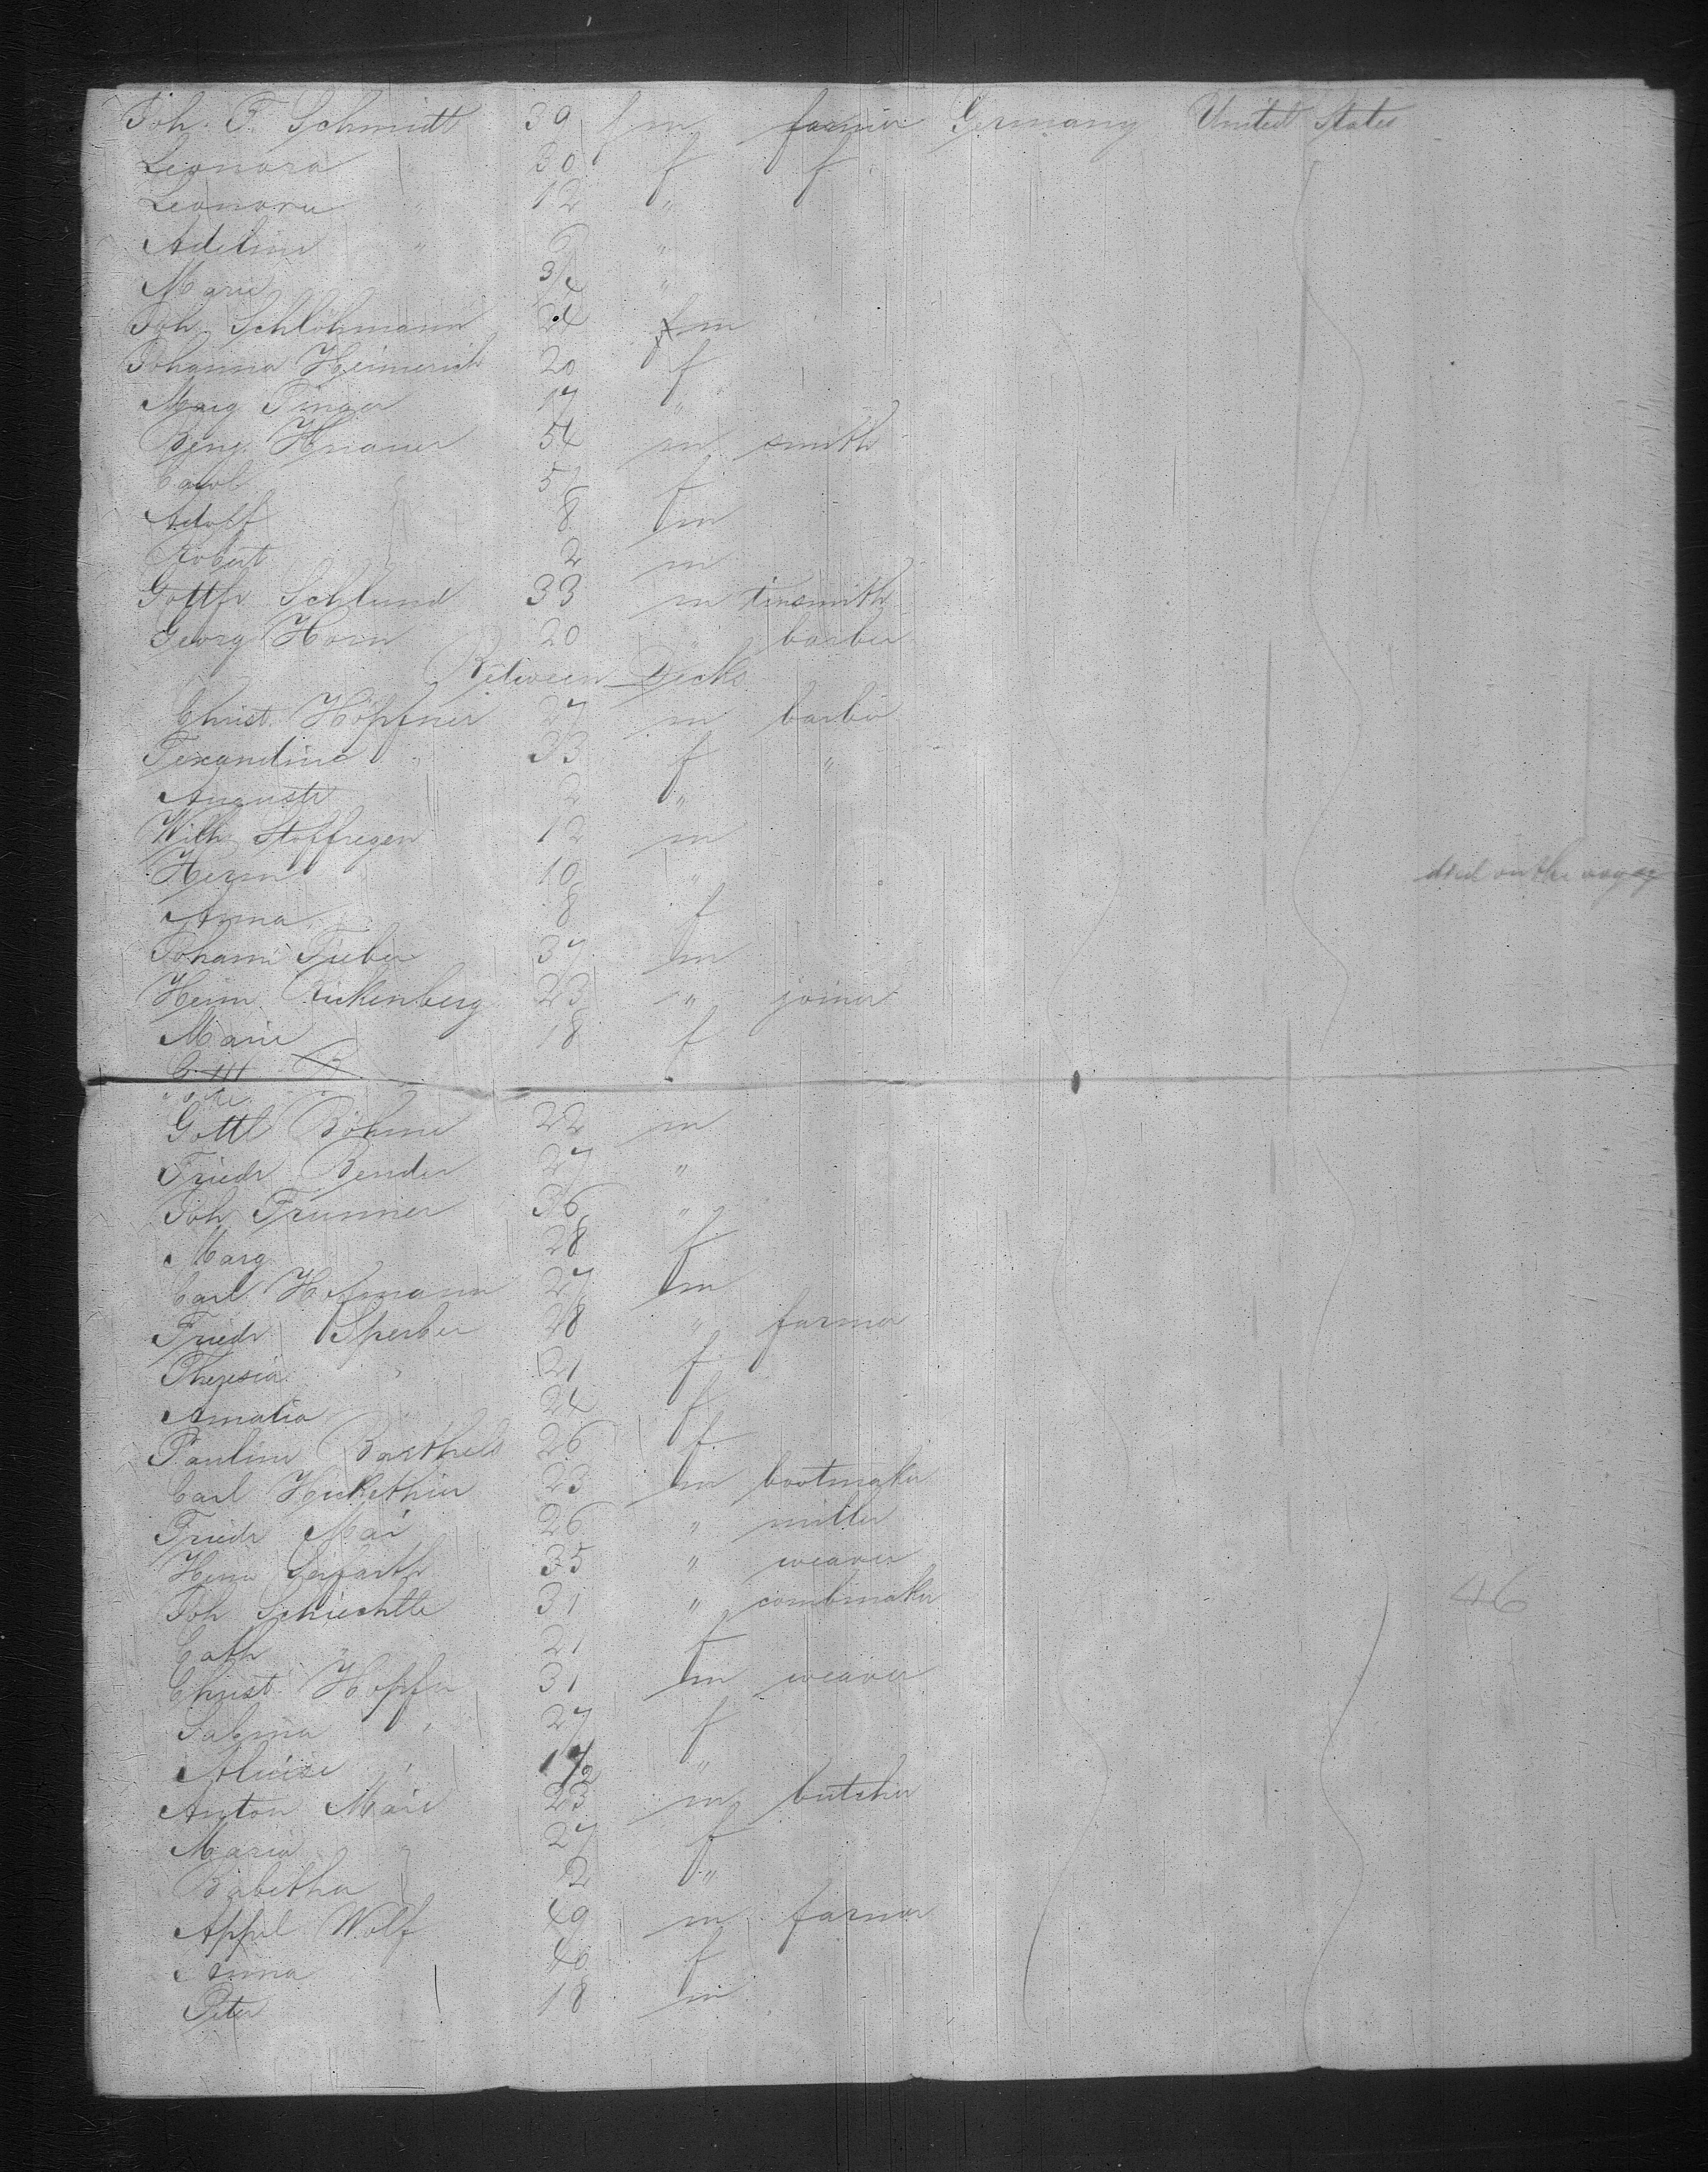 Joh. F. Schmidt 39 m farmer Germany United States
Leonora " 30 f f
Leonora " 12 "
Adeline " 6 "
Marie 3/4 "
Joh. Schlöhmann 24 m
Johanna Heimerich 20 f
Marg 17 "
Benj. Knauer 54 m smith
Carol 51 f
Adolf 8 m
Robert 2 m
Gottfr Schlund 33 m tinsmith
Georg Horn 20 " barber
Between Decks
Christ. Höpfner 27 m barber
" 33 f "
Auguste 2 "
Wilh. Stoffregen 12 m
Herm 10 " died on the voyag
Anna 8 f
Johann 37 m
Heinr. Rickenberg 23 " joiner
Marie 18 f
Gottl Böhme 22 m
Friedr Bender 27 "
Joh. Trunner 36 "
Marg 28 f
Carl Hofmann 27 m
Friedr Sperber 28 " farmer
Theresia " 21 f
Amalia 24 f
Pauline Barthels 26 f
Carl Hickethier 23 m bootmaker
Friedr Mai 26 " miller
Heinr Seifarth 35 " weaver
Joh Schiechtle 31 " combmaker 46
Cath " 21 f
Christ. Hopfn 31 m weaver
Sabina " 27 f
" 1 1/2 "
Anton 23 m butcher
Maria " 27 f
Babetha 2 "
Appel Wolf 49 m farmer
Anna 40 f
Peter 18 m